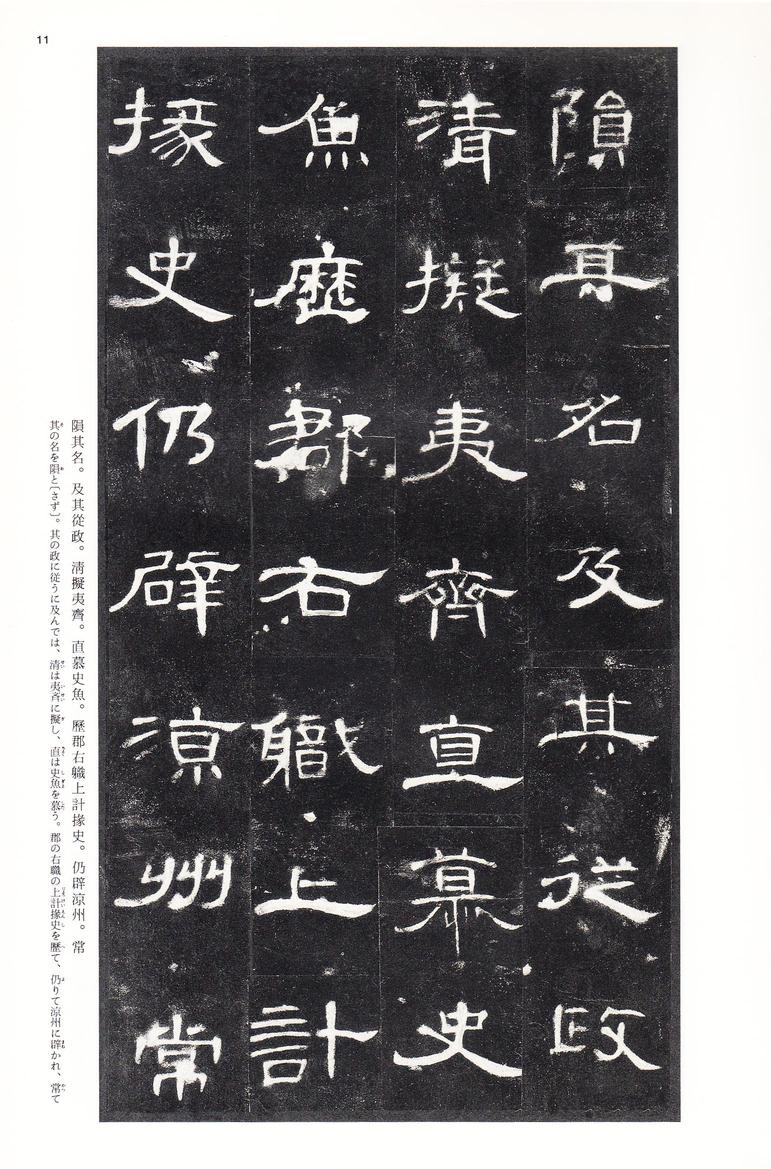 11
隕其名及其從政
清擬夷齊直慕史
魚歷郡右職上計
掾史仍辟涼州常
隕其名。及其從政。淸擬夷齊。直慕史魚。歷郡右職上計掾史。仍辟涼州。常
其の名を隕と〔さず〕。其の政に従うに及んでは、清は夷斉に擬し、直は史魚を慕う。郡の右職の上計掾史を歴て、仍りて涼州に辟かれ、常て